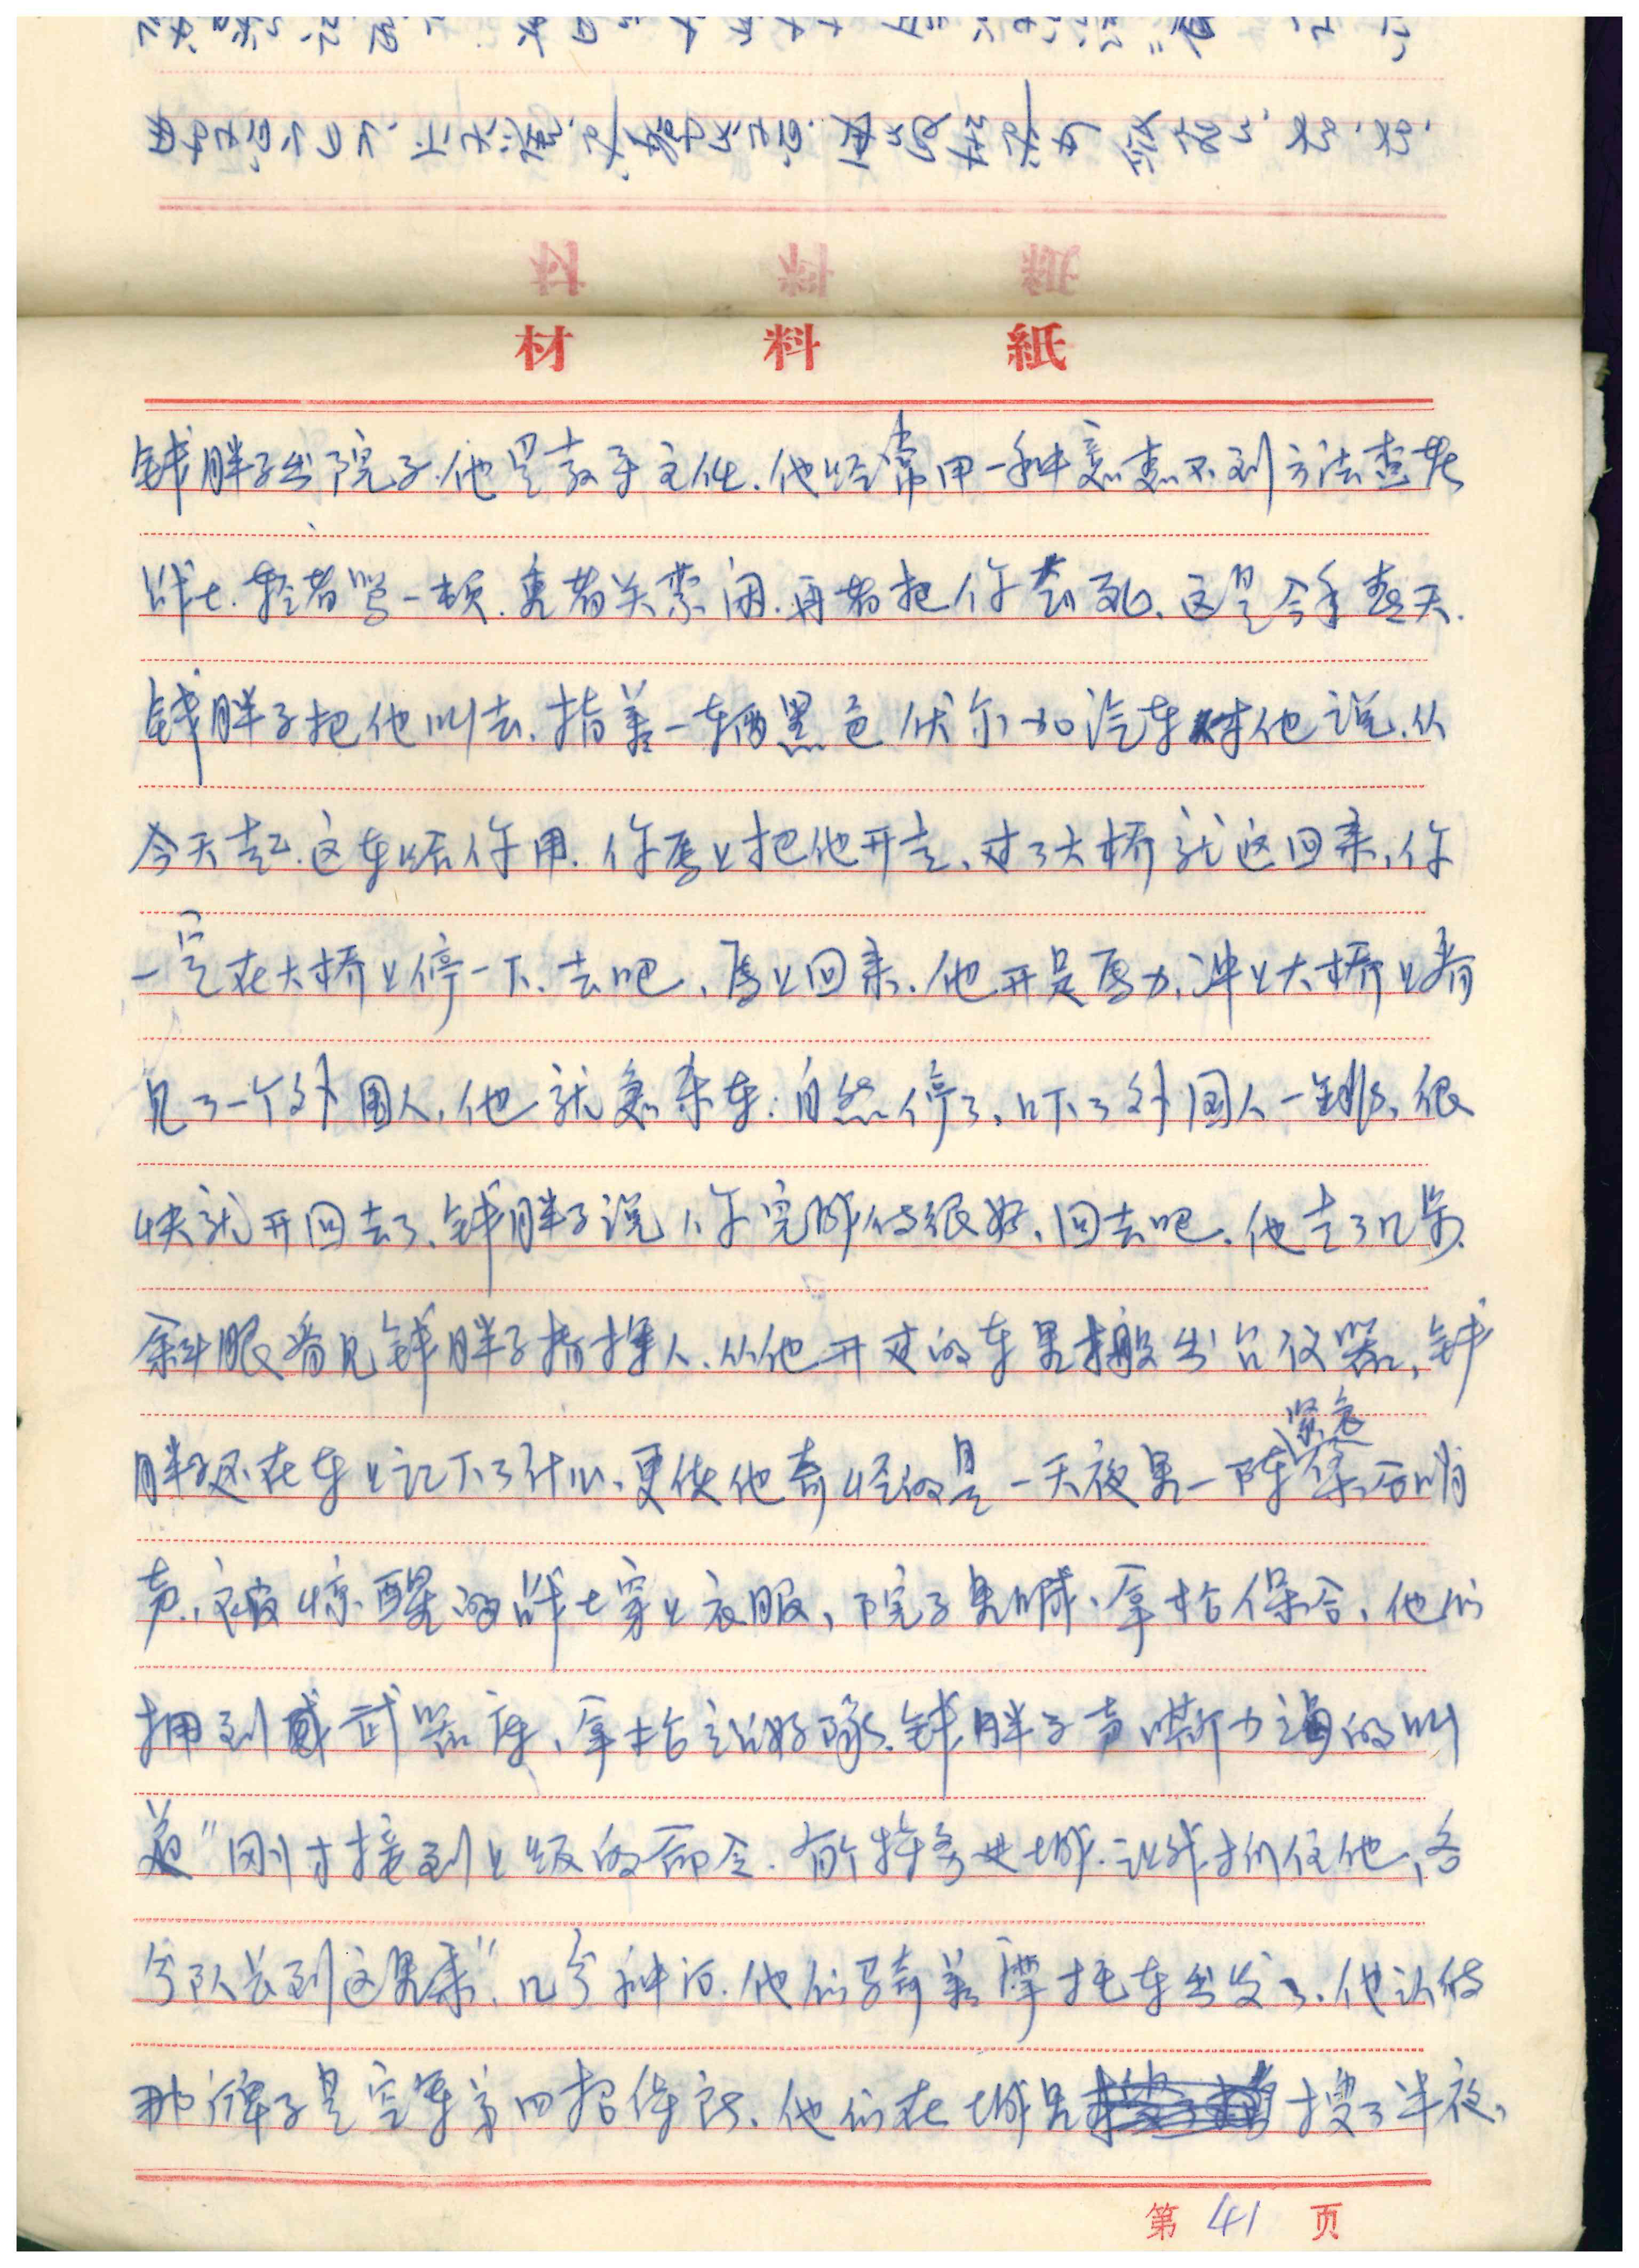 材料紙
钱胖子出院子.他是教导主任.他经常用一种意想不到方法查考
战士.轻者骂一顿.重者关禁闭.再者把你弄死.这是今年春天.
钱胖子把他叫去.指着一辆黑色伏尔加汽车对他说.从
今天起.这车归你用.你马上把他开走、过了大桥就返回来,你
一定在大桥上停一下.去吧、马上回来.他开足马力,冲上大桥上看
见了一个外国人,他就急杀车.自然停了、吓了外国人一跳、很
快就开回去了、钱胖子说,你完成的很好、回去吧.他走了几步.
斜眼看见钱胖子指挥人.从他开过的车里搬出台仪器,钱
胖子还在车上记下了什么、更使他奇怪的是一天夜里一阵紧急集合哨
声、被惊醒的战士穿上衣服,院子里喊、拿枪保合、他们
拥到武器库、拿枪站好队.钱胖子声嘶力竭的叫
道"刚才接到上级的命令.有个特务进城.让我抓住他,各
分队长到这里来",几分钟后.他们骑着摩托车出发了.他认的
那牌子是空军第四招待所.他们在城里搜了半夜,
第 41 页